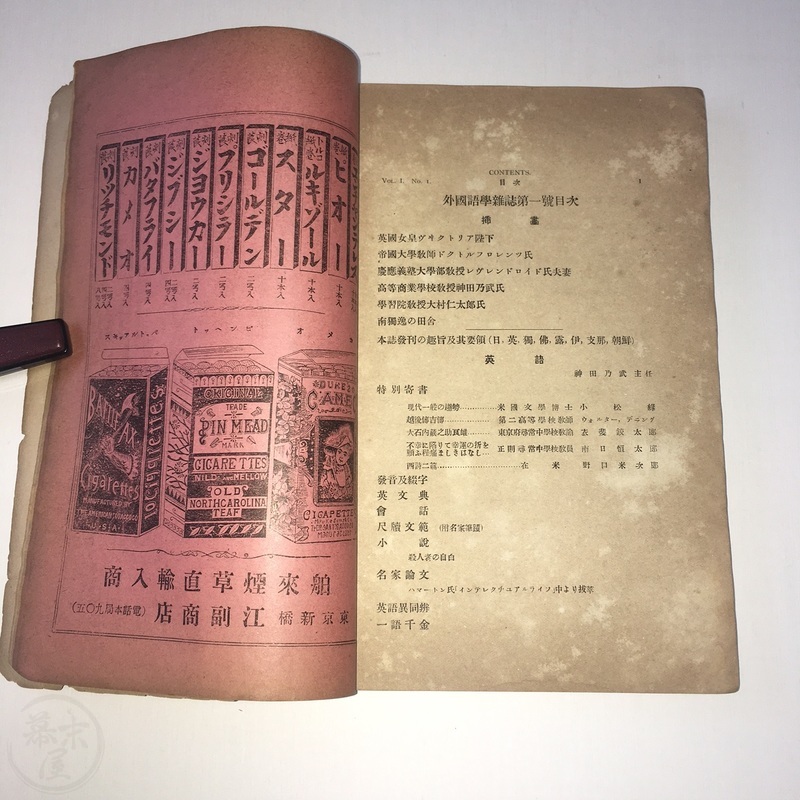 CONTENTS.
VOL. I. No. 1.
目次
1
外國語學雜誌第一號目次
挿畫
英國女皇ヴ井クトリア陛下
帝國大學敎師ドクトルフロレンツ氏
慶應義塾大學部敎授レヴレンドロイド氏夫妻
高等商業學校敎授神田乃武氏
學習院敎授大村仁太郞氏
南獨逸の田舎
本誌發刊の趣旨及其要領(日、英、獨、佛、露、伊、支那、朝鮮)
英語
神田乃武主任
特別寄書
現代一般の趨勢…………米國文學博士 小松緑
越後傳吉傳…………第二高等學校敎師 ウォルター、デニング
大石内藏之助眞雄…………東京府尋常中學校敎諭
不幸に陷りて幸運の折を
顧ふ程痛ましきはなし…正則尋常中學校敎員 南日恒太郞
西詩二篇…………在米 野口米次郞
發音及綴字
英文典
會話
尺牘文範 (附名家筆蹟)
小說
殺人者の自白
名家論文
ハマートン氏「インテレクチユアニライフ」中より拔萃
英語異同辨
一語千金
ヒオー
トルコ
紙卷
ルキゾール
紙卷
スター
刻煙
ゴールデン
フリシラー
ジヨウカー
ジプシー
バタフライ
カメオ
リツチモンド
十本入
十本入
十本入
二匁入
二匁入
ピンヘット
BATTLE AX
Cigarettes
MANUFACTURED BY
THE AMERICAN TOBACCO
U.S.A.
10 CIGARETTES
ORIGINAL
TRADE
PIN HEAD
MARK
CIGARETTES
MILD AND MELLOW
OLD
NORTH CAROLINA
LEAF
DUKE'S
CAME
CIGARETTE
舶來煙草直輸入商
東京新橋 江副商店 (電話本局九〇五)
幕末屋